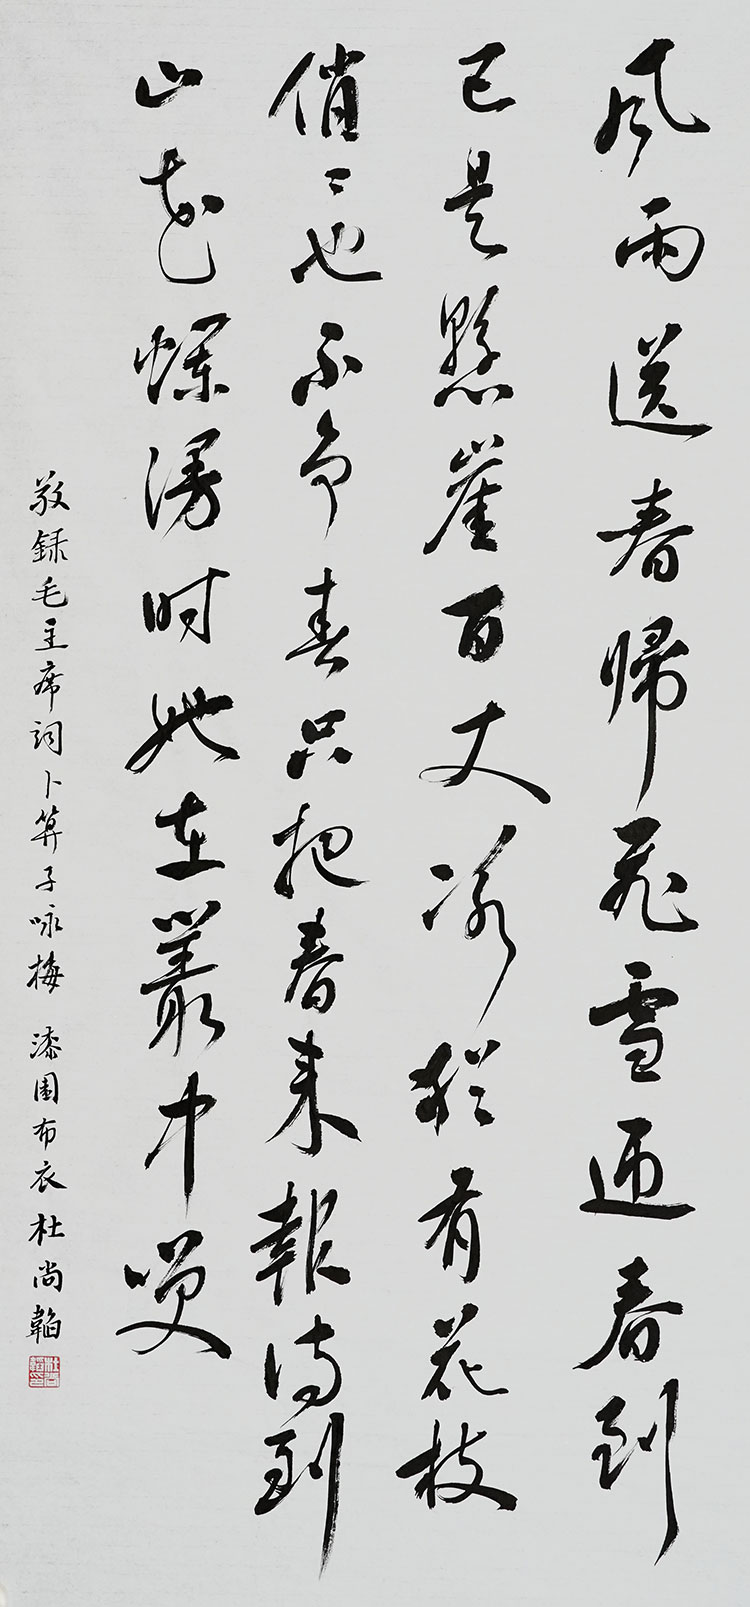 風雨送春帰飛雪迎春到
已是懸崖百丈冰猶有花枝
俏俏也不争春只把春來報待到
山花爛漫时她在叢中笑
敬録毛主席詞卜算子咏梅 漆園布衣杜尚韜